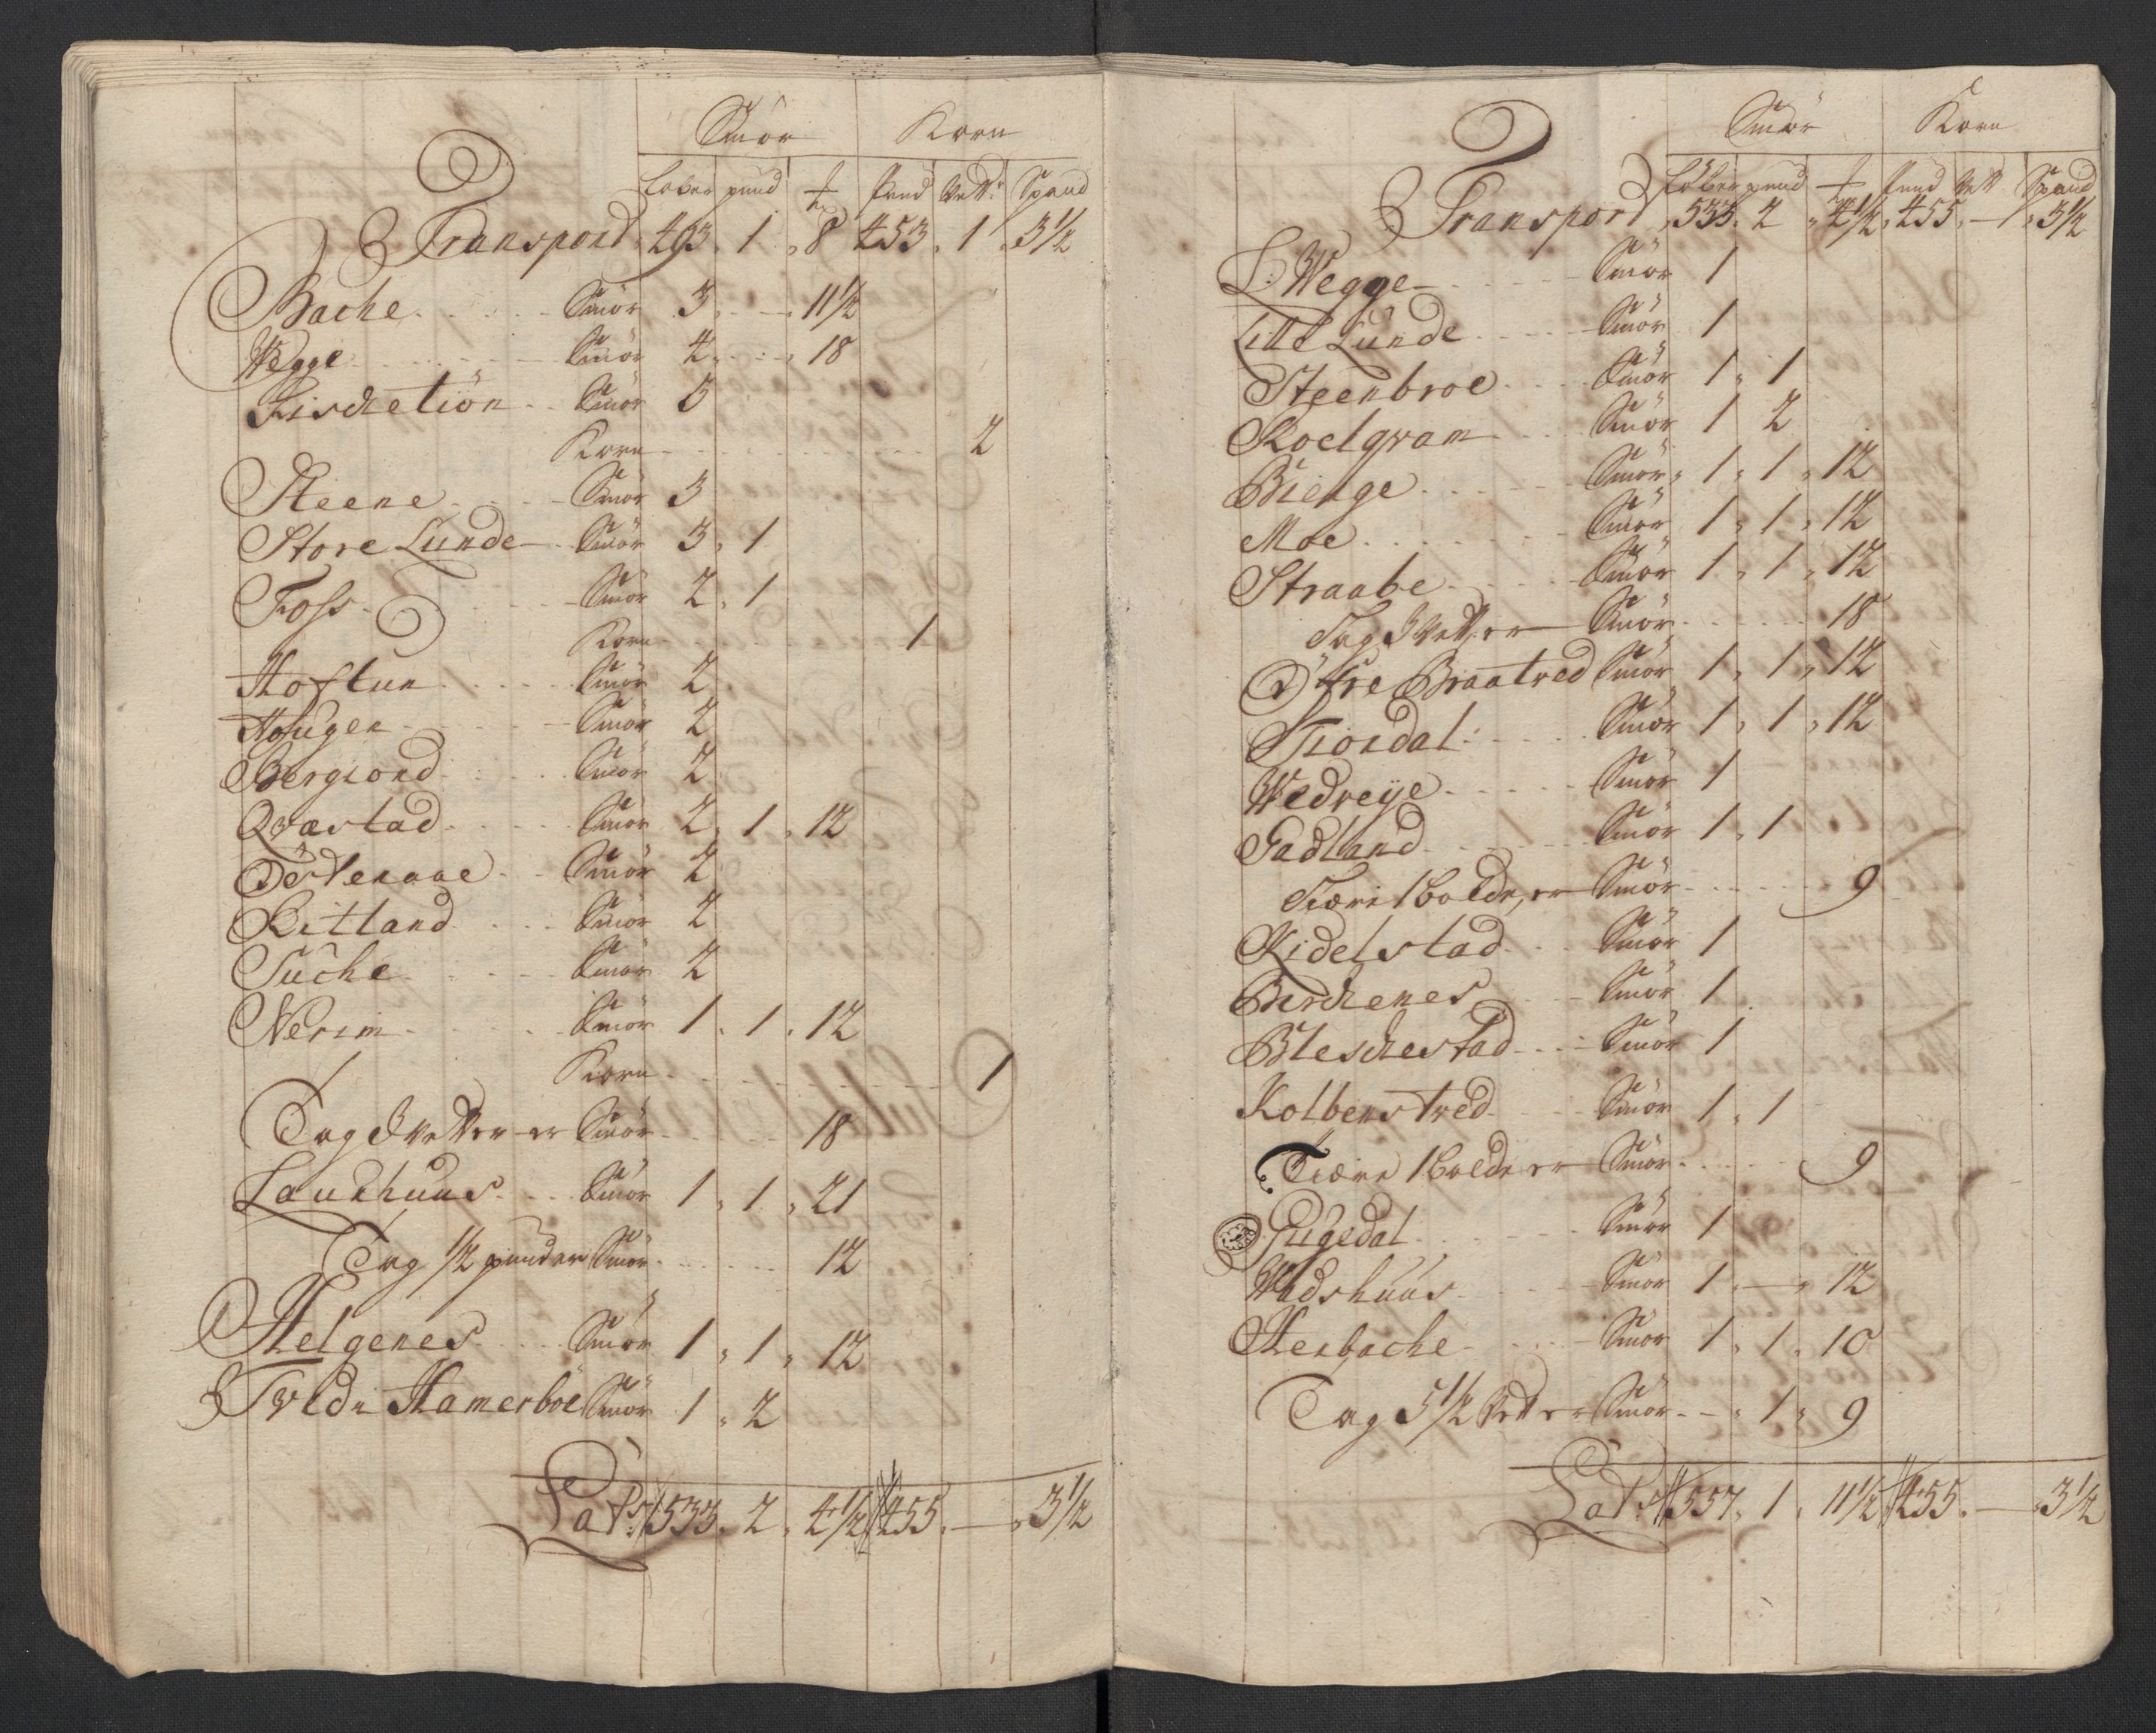 Smör Korn
Løber pund ℔ Pund Vett: Spand
Transpord 493 . 1 . 8 453 . 1 . 3½
Bache Smör 3 . — . 11½
Wegge Smör 4 . — . 18
Fischetiön Smör 3
Korn 2
Steene Smör 3
Store Lunde Smör 3 . 1
Foss Smör 2 . 1
Korn 1
Hoftun Smör 2
Hougen Smör 2
Bergiord Smör 2
Qvæstad Smör 2 . 1 . 12
Östenaae Smör 2
Kitland Smör 2
Tuche Smör 2
Nerim Smör 1 . 1 . 12
Korn 1
Tag 3 Vetter er Smör 18
Landhuus Smör 1 . 1 . 21
Tag ½ pund er Smör 12
Helgenes Smör 1 . 1 . 12
Tvede Hamerböe Smör 1 . 2
Lats 533 . 2 . 4½ 455 . — . 3½
Smör Korn
Løber pund ℔ Pund Vett Spand
Transport 533 . 2 . 4½ . 455 . — . 3½
L: Wegge Smör 1
Litle Lunde Smör 1
Steenbroe Smör 1 . 1
Koelgram Smör 1 2
Bienge Smör 1 . 1 . 12
Moe Smör 1 . 1 . 12
Straabe Smör 1 . 1 . 12
Tag 3 Vetter er Smör 18
Öfre Braatved Smör 1 . 1 . 12
Tiordal Smör 1 . 1 . 12
Wedreÿe Smör 1
Gadland Smör 1 . 1
Tiære 1 Bolde, er Smör 9
Kidelstad Smör 1
Berchenes Smör 1
Bleschestad Smör 1
Kolbenstved Smör 1 . 1
Tiære 1 Bolde er Smör 9
Gugedal Smör 1
Wadshuus Smör 1 . — . 12
Henbache Smör 1 . 1 . 10
Tag 5½ Vett er Smör — . 1 . 9
Lats 557 . 1 . 11½ 455 . — . 3½